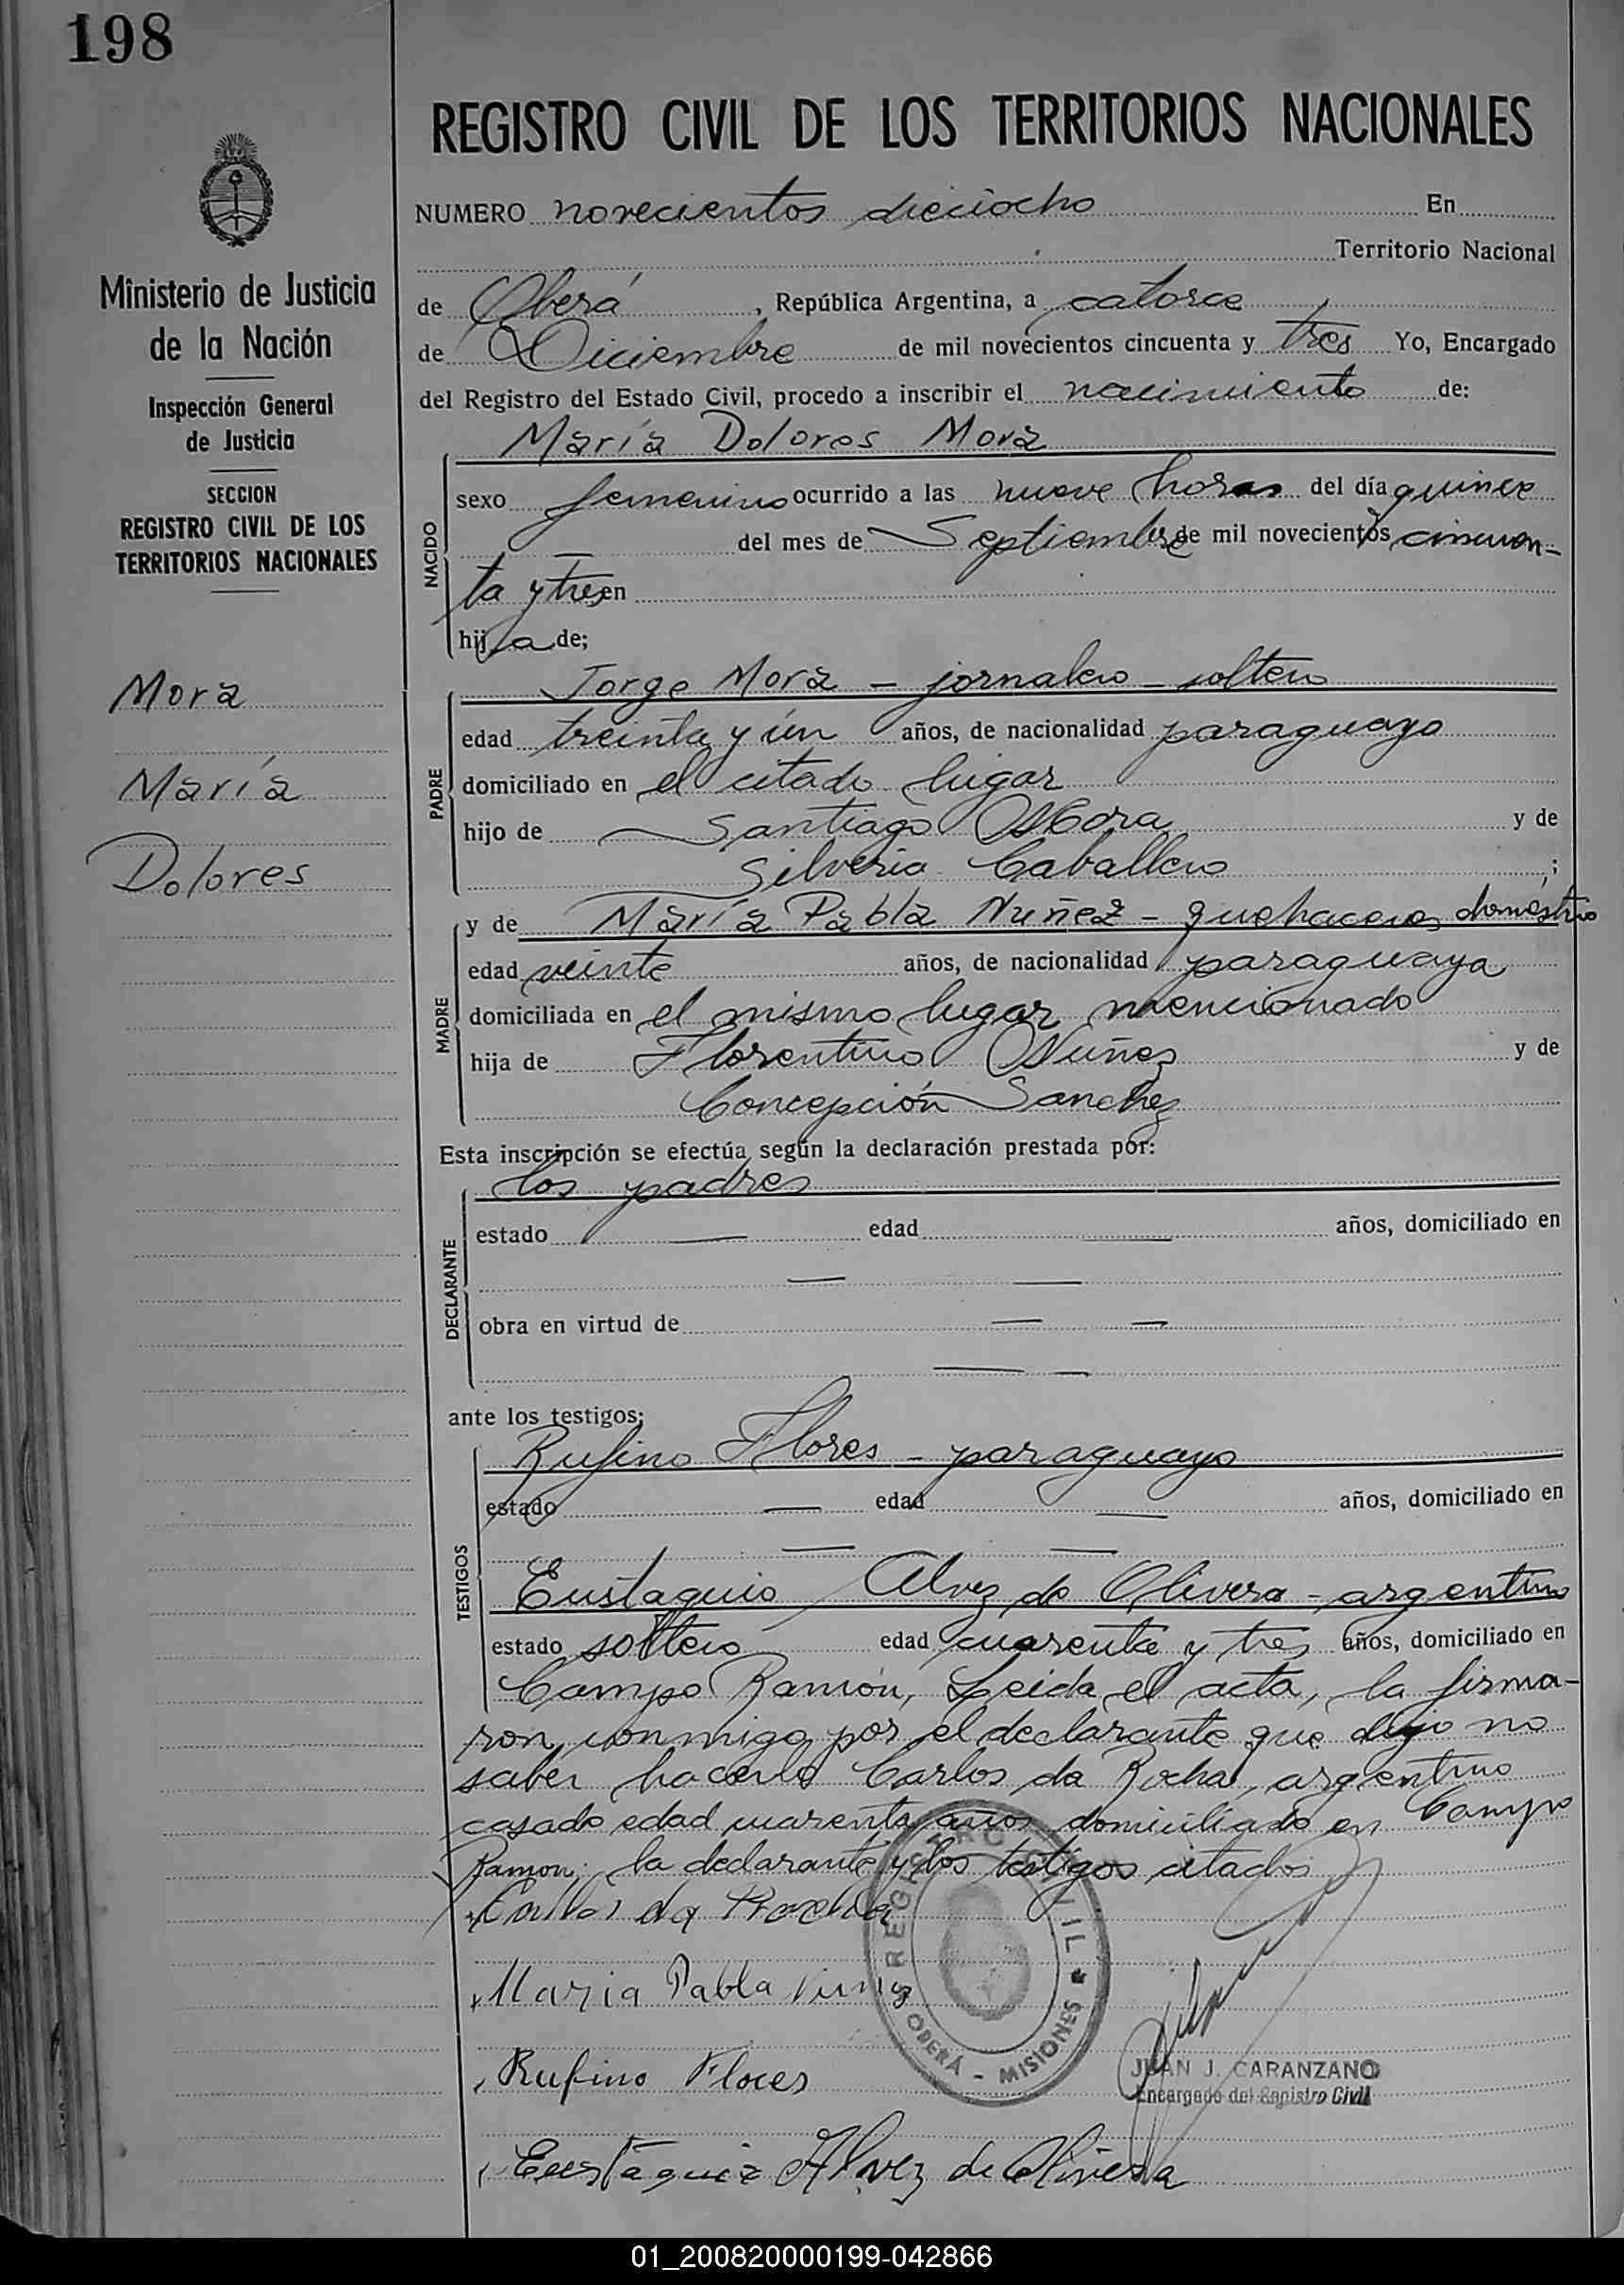 198
REGISTRO CIVIL DE LOS TERRITORIOS NACIONALES
Ministerio de Justicia
de la Nación
Inspección General
de Justicia
SECCION
REGISTRO CIVIL DE LOS
TERRITORIOS NACIONALES
Mora
María
Dolores
NUMERO novecientos dieciocho En
Territorio Nacional
de Oberá, República Argentina, a catorce
de Diciembre de mil novecientos cincuenta y tres Yo, Encargado
del Registro del Estado Civil, procedo a inscribir el nacimiento de:
María Dolores Mora
NACIDO
sexo femenino ocurrido a las nueve horas del día quince
del mes de Septiembre de mil novecientos cincuen-
ta y tres en
hija de;
Jorge Mora - jornalero - soltero
PADRE
edad treinta y ún años, de nacionalidad paraguayo
domiciliado en el citado lugar
hijo de Santiago Mora y de
Silveria Caballero ;
y de María Pabla Nuñez - quehaceres doméstico
MADRE
edad veinte años, de nacionalidad paraguaya
domiciliada en el mismo lugar mencionado
hija de Florentino Nuñez y de
Concepción Sanchez
Esta inscripción se efectúa según la declaración prestada por:
los padres
DECLARANTE
estado — edad — años, domiciliado en
— —
obra en virtud de — —
— —
ante los testigos;
Rufino Flores - paraguayo
TESTIGOS
estado — edad — años, domiciliado en
— —
Eustaquio Alvez de Olivera - argentino
estado soltero edad cuarenta y tres años, domiciliado en
Campo Ramón, Leida el acta, la firma-
ron conmigo por el declarante que dijo no
saber hacerlo Carlos da Rocha, argentino
casado edad cuarenta años domiciliado en Campo
Ramon; la declarante y los testigos citados
Carlos da Rocha
Maria Pabla Nuñez
Rufino Flores
Eustaquio Alvez de Olivera
REGISTRO CIVIL
OBERÁ - MISIONES
JUAN J. CARANZANO
Encargado del Registro Civil
01_200820000199-042866